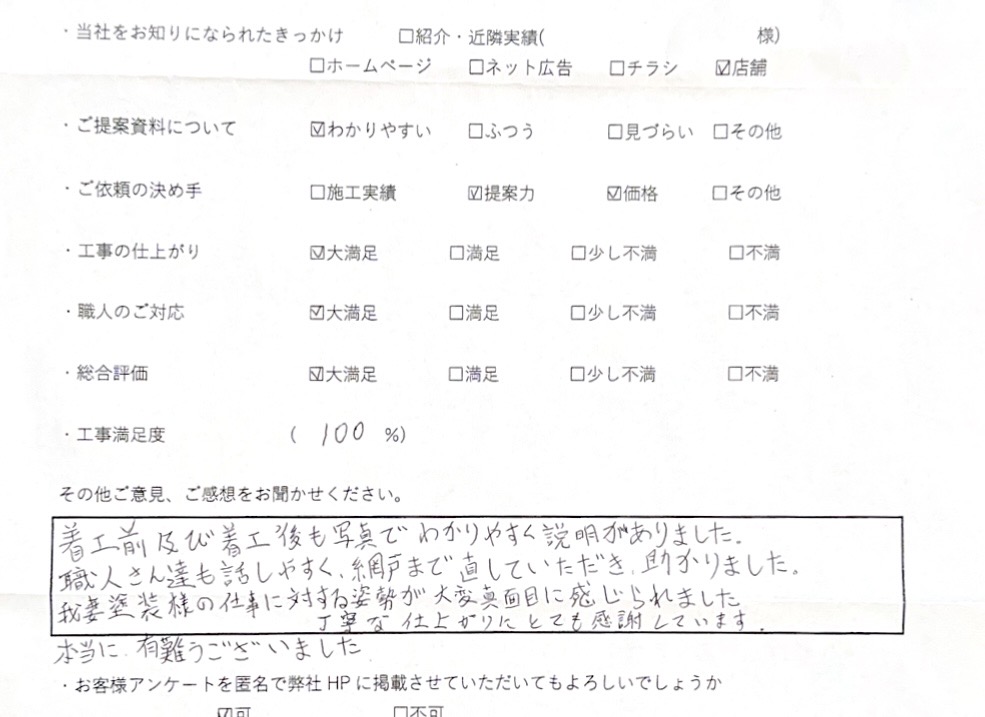 ・当社をお知りになられたきっかけ ☐紹介・近隣実績( 様)
☐ホームページ ☐ネット広告 ☐チラシ ☑店舗
・ご提案資料について ☑わかりやすい ☐ふつう ☐見づらい ☐その他
・ご依頼の決め手 ☐施工実績 ☑提案力 ☑価格 ☐その他
・工事の仕上がり ☑大満足 ☐満足 ☐少し不満 ☐不満
・職人のご対応 ☑大満足 ☐満足 ☐少し不満 ☐不満
・総合評価 ☑大満足 ☐満足 ☐少し不満 ☐不満
・工事満足度 ( 100 %)
その他ご意見、ご感想をお聞かせください。
着工前及び着工後も写真でわかりやすく説明がありました。
職人さん達も話しやすく、網戸まで直していただき、助かりました。
我妻塗装様の仕事に対する姿勢が大変真面目に感じられました
丁寧な仕上がりにとても感謝しています。
本当に有難うございました
・お客様アンケートを匿名で弊社HPに掲載させていただいてもよろしいでしょうか
☑可 ☐不可